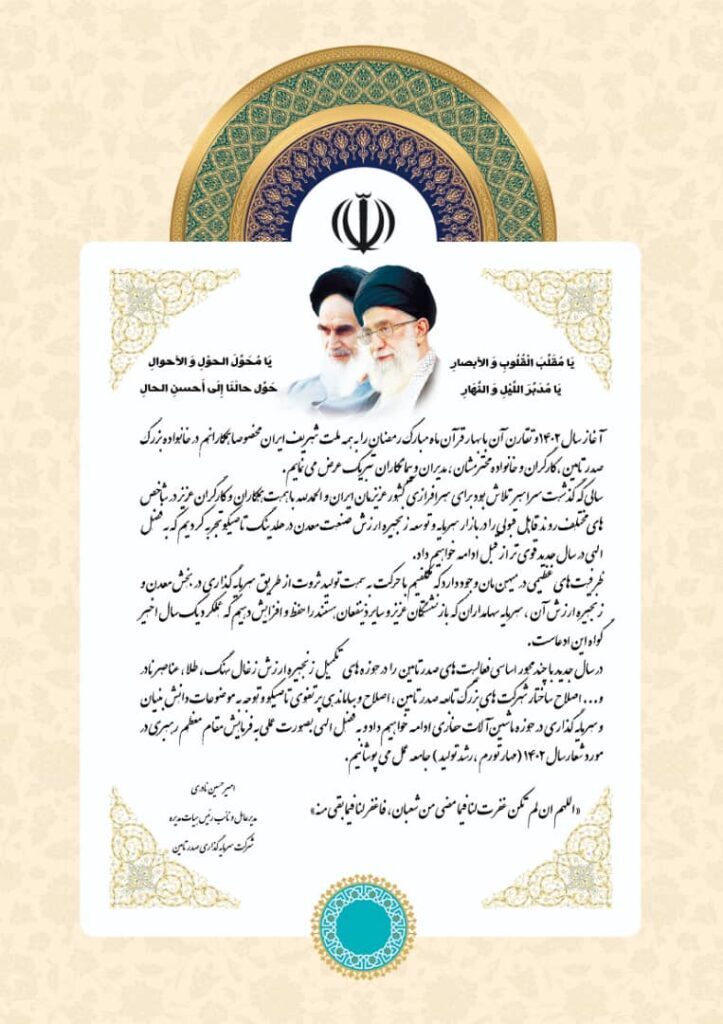 یَا مُقَلِّبَ الْقُلُوبِ وَ الأبصارِ
یَا مُحَوِّلَ الحوْلِ وَ الأحوالِ
یَا مُدَبِّرَ اللَّیْلِ وَ النَّهَارِ
حَوِّل حالَنَا إلَی أحسنِ الحالِ
آغاز سال ۱۴۰۲ و تقارن آن با بهار قرآن ماه مبارک رمضان را به همه ملت شریف ایران مخصوصا همکارانم در خانواده بزرگ
صدر تامین ، کارگران و خانواده محترمشان ، مدیران و پیمانکاران تبریک عرض می نمایم.
سالی که گذشت سراسر تلاش بود برای سرافرازی کشور عزیزمان ایران و الحمدلله با همت همکاران و کارگران عزیز در شاخص
های مختلف روند قابل قبولی را در بازار سرمایه و توسعه زنجیره ارزش صنعت معدن در هلدینگ تاصیکو تجربه کردیم که به فضل
الهی در سال جدید قوی تر از قبل ادامه خواهیم داد.
ظرفیت های عظیمی در میهن مان وجود دارد که مکلفیم با حرکت به سمت تولید ثروت از طریق سرمایه گذاری در بخش معدن و
زنجیره ارزش آن ، سرمایه سهامداران که بازنشستگان عزیز و سایر ذینفعان هستند را حفظ و افزایش دهیم که عملکرد یک سال اخیر
گواه این ادعاست.
در سال جدید با چند محور اساسی فعالیت های صدر تامین را در حوزه های تکمیل زنجیره ارزش زغال سنگ ، طلا ، عناصر نادر
و... اصلاح ساختار شرکت های بزرگ تابعه صدر تامین ، اصلاح و ساماندهی پرتفوی تاصیکو و توجه به موضوعات دانش بنیان
و سرمایه گذاری در حوزه ماشین آلات حفاری ادامه خواهیم داد و به فضل الهی بصورت عملی به فرمایش مقام معظم رهبری در
مورد شعار سال ۱۴۰۲ (مهار تورم ، رشد تولید ) جامه عمل می پوشانیم.
«اللهم ان لم تکن غفرت لنا فیما مضی من شعبان ، فاغفر لنا فیما بقی منه»
امیرحسین نادری
مدیرعامل و نائب رئیس هیات مدیره
شرکت سرمایه گذاری صدر تامین